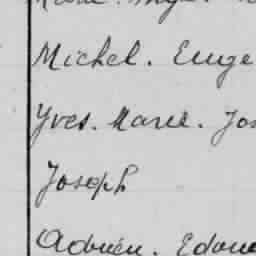 Michel. Euge
Yves. Marie. Jos
Joseph
Adrien. Edoua